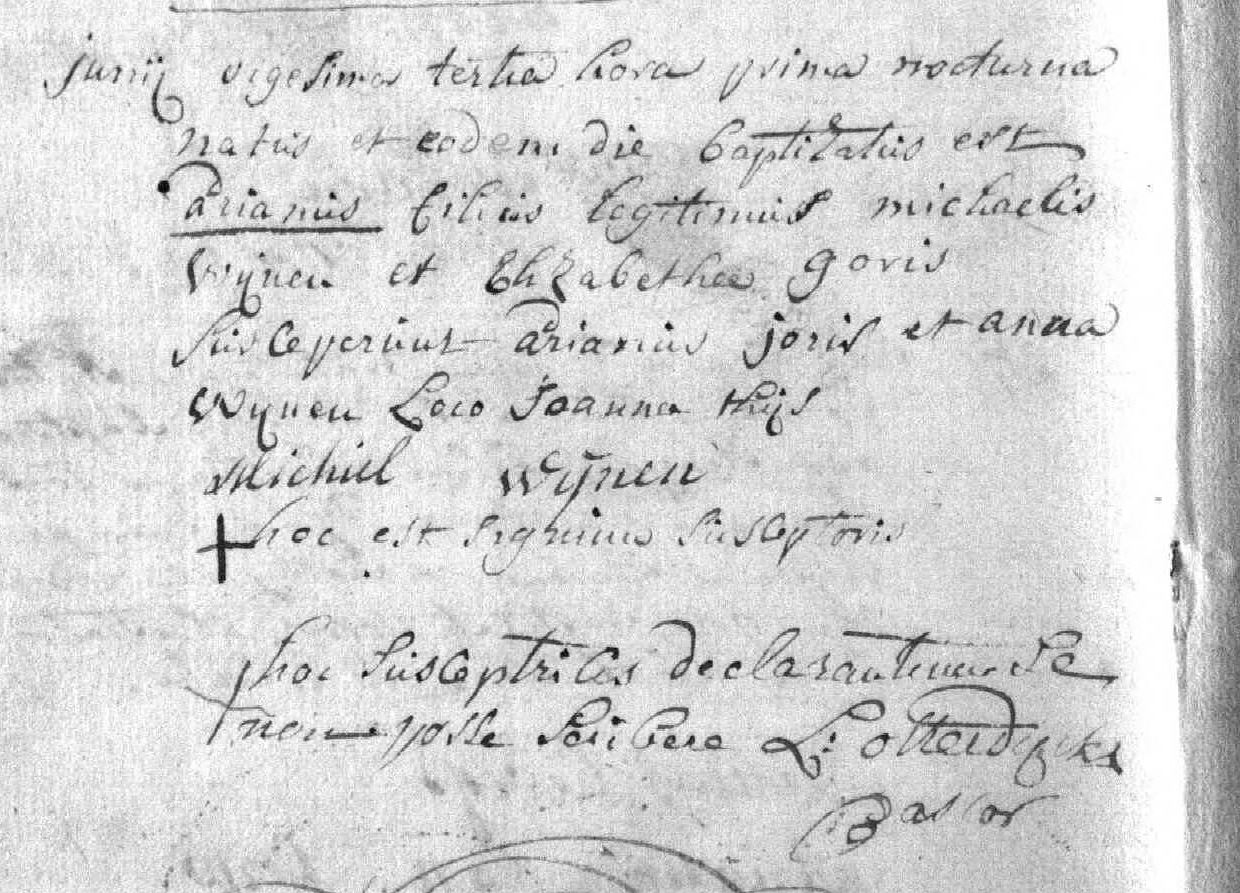 junij vigesima tertia hora prima nocturna
natus et eodem die baptizatus est
adrianus filius legitimus michaelis
Wijnen et Elizabethae goris
Susceperunt adrianus joris et anna
Wijnen Loco Joanna thijs
Michiel Wijnen
+ hoc est signum susceptoris
hoc susceptricis declarantium se
non posse scribere L: otterdijcks
Pastor